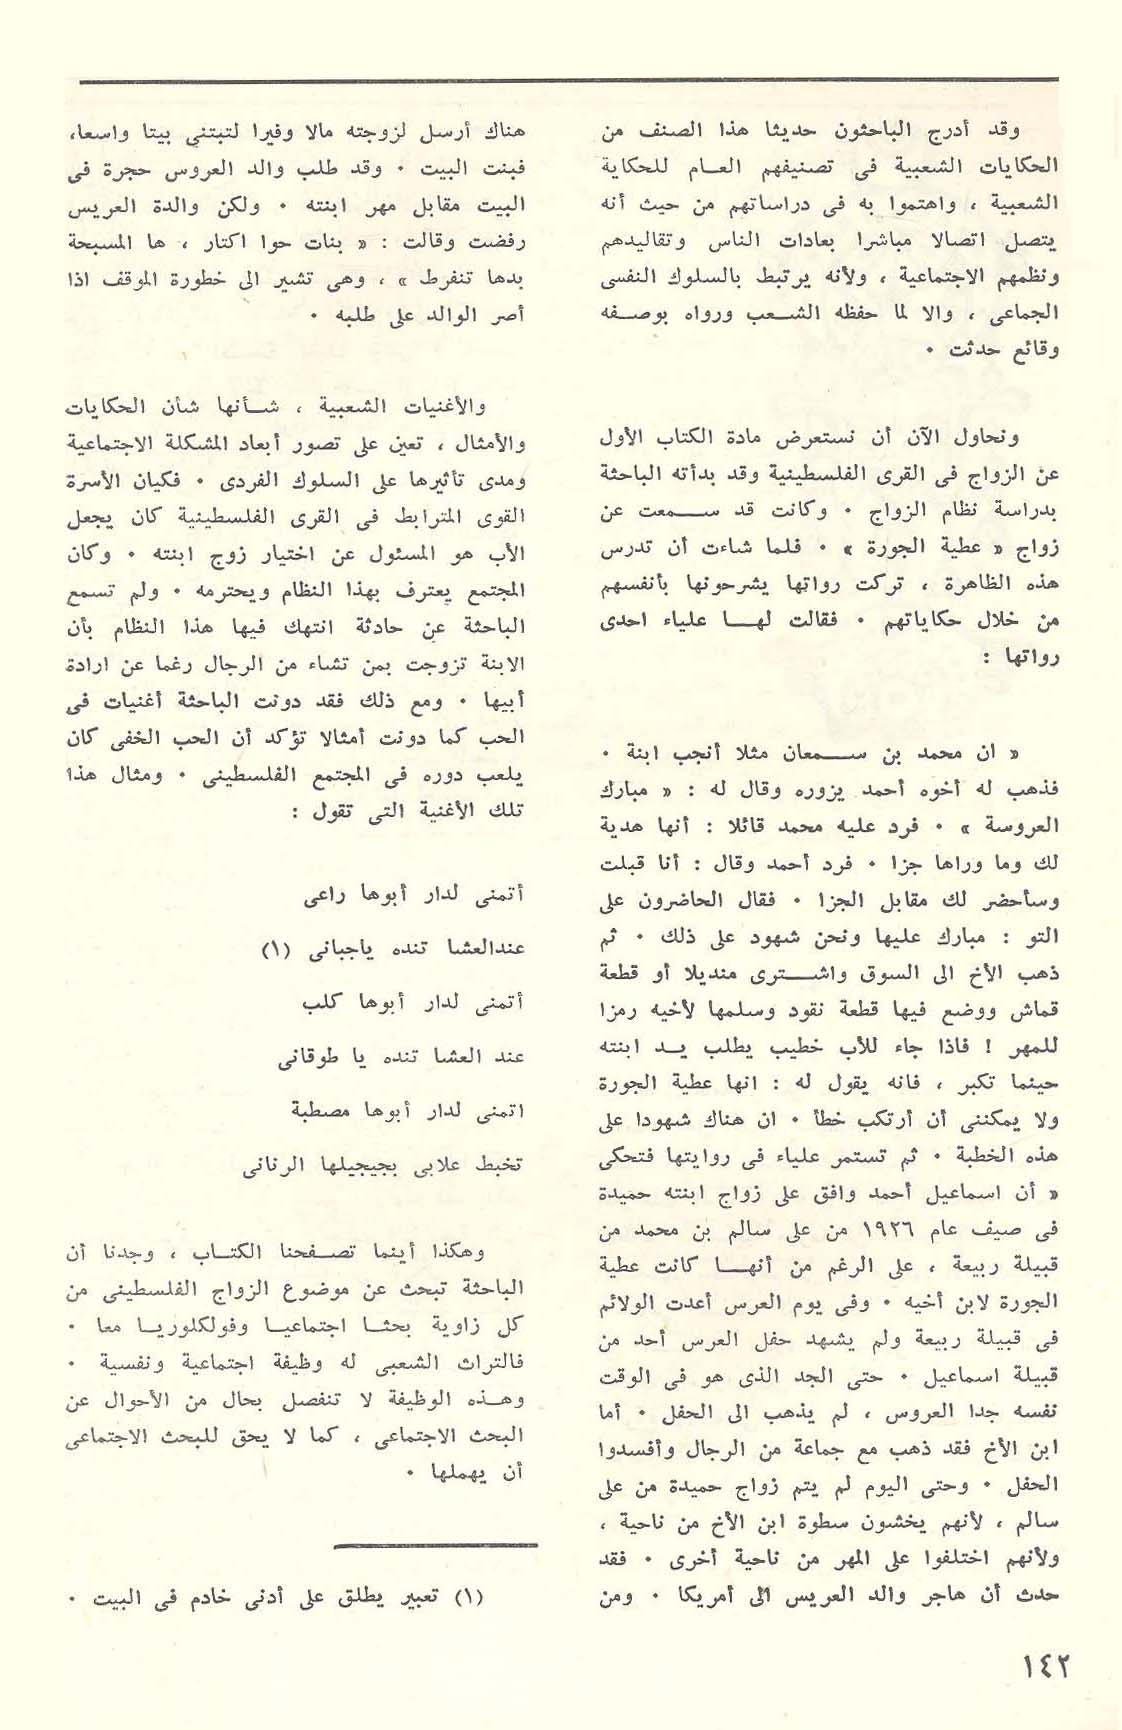 وقد أدرج الباحثون حديثا هذا الصنف من
الحكايات الشعبية فى تصنيفهم العـام للحكاية
الشعبية ، واهتموا به فى دراساتهم من حيث أنه
يتصل اتصالا مباشرا بعادات الناس وتقاليدهم
ونظمهم الاجتماعية ، ولأنه يرتبط بالسلوك النفسى
الجماعى ، والا لما حفظه الشـعب ورواه بوصـفه
وقائع حدثت ٠
ونحاول الآن أن نستعرض مادة الكتاب الأول
عن الزواج فى القرى الفلسطينية وقد بدأته الباحثة
بدراسة نظام الزواج ٠ وكانت قد سـمعت عن
زواج « عطية الجورة » ٠ فلما شاءت أن تدرس
هذه الظاهرة ، تركت رواتها يشرحونها بأنفسهم
من خلال حكاياتهم ٠ فقالت لهـا علياء احدى
رواتها :
« ان محمد بن سـمعان مثلا أنجب ابنة ٠
فذهب له أخوه أحمد يزوره وقال له : « مبارك
العروسة » ٠ فرد عليه محمد قائلا : أنها هدية
لك وما وراها جزا ٠ فرد أحمد وقال : أنا قبلت
وسأحضر لك مقابل الجزا ٠ فقال الحاضرون على
التو : مبارك عليها ونحن شهود على ذلك ٠ ثم
ذهب الأخ الى السوق واشـترى منديلا أو قطعة
قماش ووضع فيها قطعة نقود وسلمها لأخيه رمزا
للمهر ! فاذا جاء للأب خطيب يطلب يـد ابنته
حينما تكبر ، فانه يقول له : انها عطية الجورة
ولا يمكننى أن أرتكب خطأ ٠ ان هناك شهودا على
هذه الخطبة ٠ ثم تستمر علياء فى روايتها فتحكى
« أن اسماعيل أحمد وافق على زواج ابنته حميدة
فى صيف عام ١٩٢٦ من على سالم بن محمد من
قبيلة ربيعة ، على الرغم من أنهـا كانت عطية
الجورة لابن أخيه ٠ وفى يوم العرس أعدت الولائم
فى قبيلة ربيعة ولم يشهد حفل العرس أحد من
قبيلة اسماعيل ٠ حتى الجد الذى هو فى الوقت
نفسه جدا العروس ، لم يذهب الى الحفل ٠ أما
ابن الأخ فقد ذهب مع جماعة من الرجال وأفسدوا
الحفل ٠ وحتى اليوم لم يتم زواج حميدة من على
سالم ، لأنهم يخشون سطوة ابن الأخ من ناحية ،
ولأنهم اختلفوا على المهر من ناحية أخرى ٠ فقد
حدث أن هاجر والد العريس الى أمريكا ٠ ومن
هناك أرسل لزوجته مالا وفيرا لتبتنى بيتا واسعا،
فبنت البيت ٠ وقد طلب والد العروس حجرة فى
البيت مقابل مهر ابنته ٠ ولكن والدة العريس
رفضت وقالت : « بنات حوا اكتار ، ها المسبحة
بدها تنفرط » ، وهى تشير الى خطورة الموقف اذا
أصر الوالد على طلبه ٠
والأغنيات الشعبية ، شـأنها شأن الحكايات
والأمثال ، تعين على تصور أبعاد المشكلة الاجتماعية
ومدى تأثيرها على السلوك الفردى ٠ فكيان الأسرة
القوى المترابط فى القرى الفلسطينية كان يجعل
الأب هو المسئول عن اختيار زوج ابنته ٠ وكان
المجتمع يعترف بهذا النظام ويحترمه ٠ ولم تسمع
الباحثة عن حادثة انتهك فيها هذا النظام بأن
الابنة تزوجت بمن تشاء من الرجال رغما عن ارادة
أبيها ٠ ومع ذلك فقد دونت الباحثة أغنيات فى
الحب كما دونت أمثالا تؤكد أن الحب الخفى كان
يلعب دوره فى المجتمع الفلسطينى ٠ ومثال هذا
تلك الأغنية التى تقول :
أتمنى لدار أبوها راعى
عندالعشا تنده ياجبانى (١)
أتمنى لدار أبوها كلب
عند العشا تنده يا طوقانى
اتمنى لدار أبوها مصطبة
تخبط علابى بجيجيلها الرنانى
وهكذا أينما تصـفحنا الكتـاب ، وجدنا أن
الباحثة تبحث عن موضوع الزواج الفلسطينى من
كل زاوية بحثـا اجتماعيـا وفولكلوريـا معا ٠
فالتراث الشعبى له وظيفة اجتماعية ونفسية ٠
وهـذه الوظيفة لا تنفصل بحال من الأحوال عن
البحث الاجتماعى ، كما لا يحق للبحث الاجتماعى
أن يهملها ٠
(١) تعبير يطلق على أدنى خادم فى البيت ٠
١٤٢